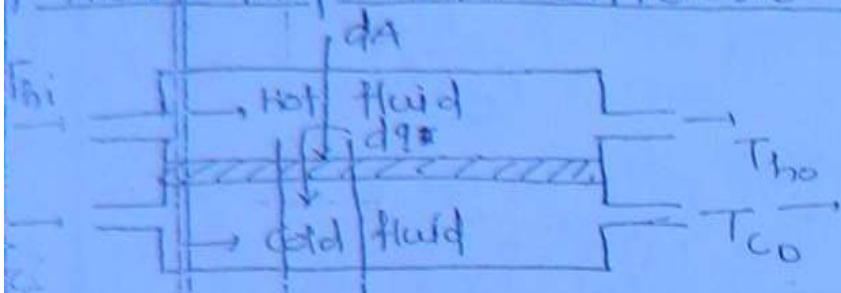 dA
Thi
Hot fluid
dq
Tho
Cold fluid
TCO